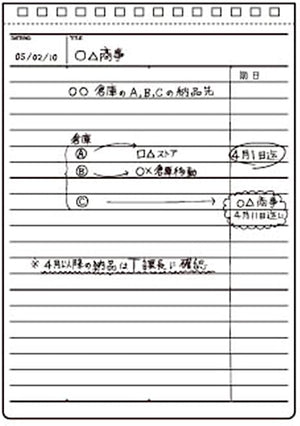 DATE/NO. TITLE
05/02/10 ○△商事
期日
○○倉庫のA,B,Cの納品先
倉庫
Ⓐ □△ストア 4月1日迄
Ⓑ ○×倉庫移動
Ⓒ ○△商事
4月11日迄に
※4月以降の納品はT課長に確認